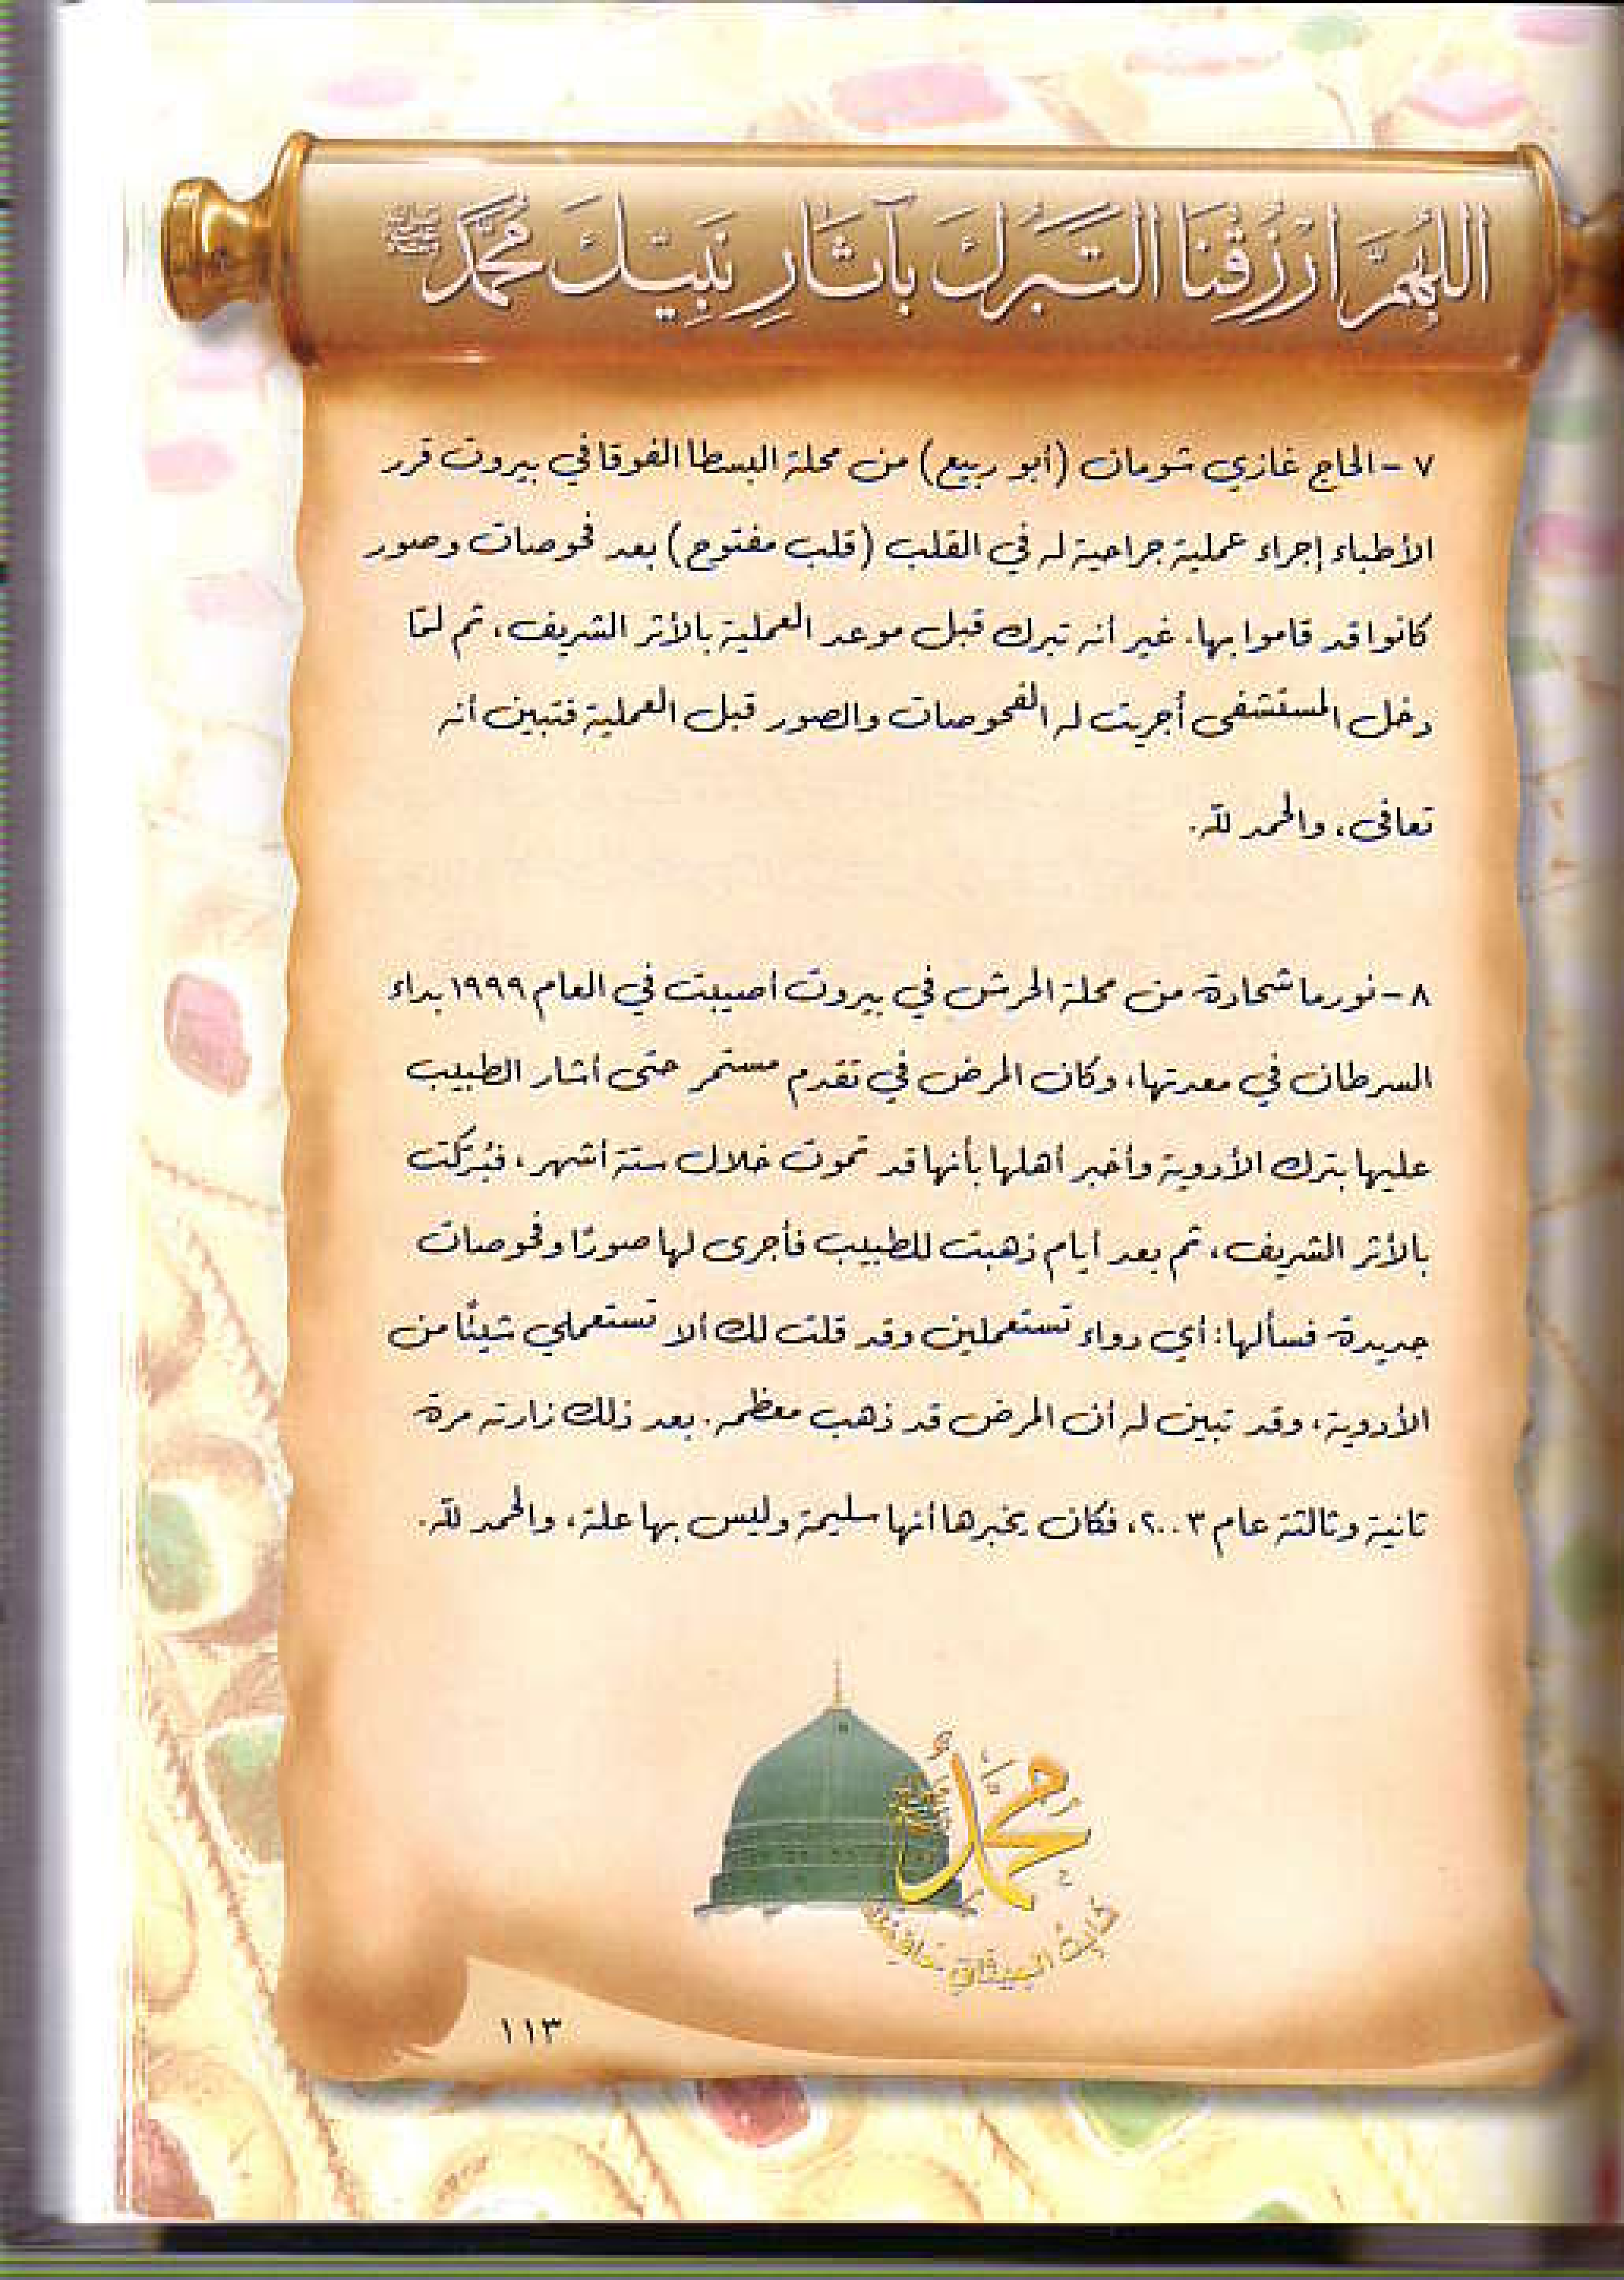 اللهُمَّ ارْزُقْنَا التَّبَرُّكَ بآثَارِ نَبِيِّكَ مُحَمَّدٍ ﷺ
٧ - الحاج غازي شومان (أبو ربيع) من محلة البسطا الفوقا في بيروت قرر
الأطباء إجراء عملية جراحية له في القلب (قلب مفتوح) بعد فحوصات وصور
كانوا قد قاموا بها. غير أنه تبرك قبل موعد العملية بالأثر الشريف، ثم لمّا
دخل المستشفى أجريت له الفحوصات والصور قبل العملية فتبين أنه
تعافى، والحمد لله.
٨ - نورما شحادة من محلة الحرش في بيروت أصيبت في العام ١٩٩٩ بداء
السرطان في معدتها، وكان المرض في تقدم مستمر حتى أشار الطبيب
عليها بترك الأدوية وأخبر أهلها بأنها قد تموت خلال ستة أشهر، فبُرّكت
بالأثر الشريف، ثم بعد أيام ذهبت للطبيب فأجرى لها صورًا وفحوصات
جديدة فسألها: أي دواء تستعملين وقد قلت لك ألا تستعملي شيئًا من
الأدوية، وقد تبين له أن المرض قد ذهب معظمه. بعد ذلك زارته مرة
ثانية وثالثة عام ٢٠٠٣، فكان يخبرها أنها سليمة وليس بها علة، والحمد لله.
مُحَمَّدٌ
١١٣